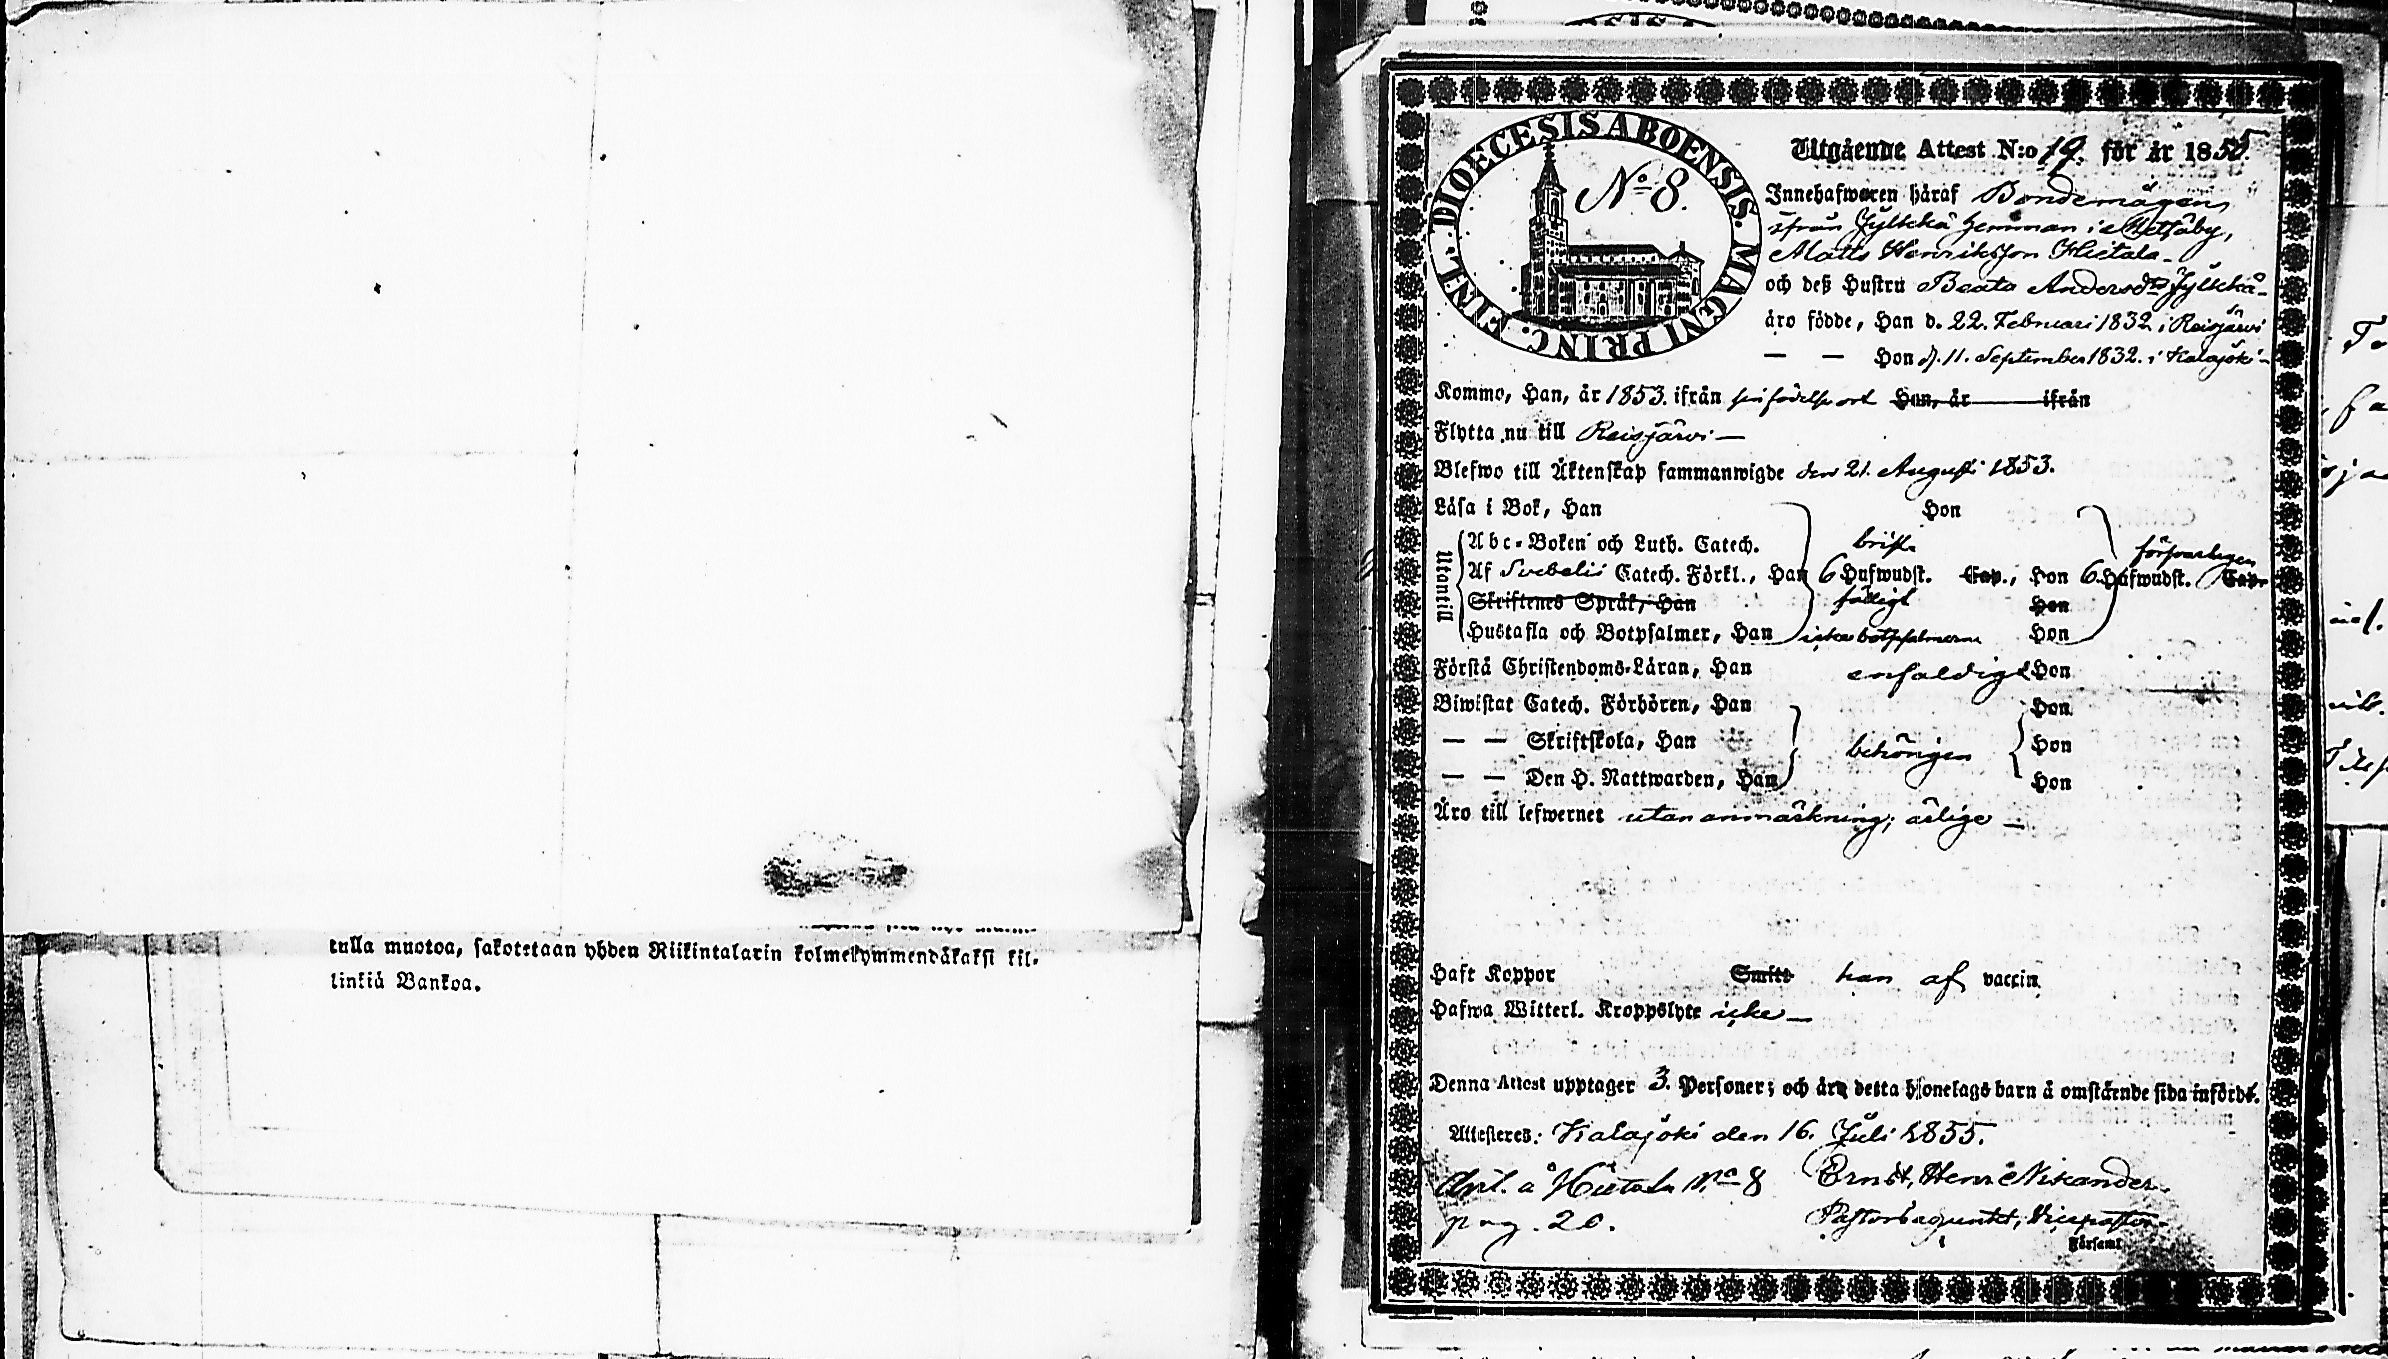 tulla muotoa, sakotetaan yhden Riikintalarin kolmekymmendäkaksi kil-
linkiä Bankoa.
DIOECESIS ABOENSIS. MAGNI PRINC. FINL.
No 8.
Utgående Attest N:o 19. för år 1855.
Innehafwaren häraf Bondemågen
ifrån Jylkkä hemman i Metsäby,
Matts Henriksson Hietala
och deß Hustru Beata Andersdr Jylkkä
äro födde, Han d. 22. Februari 1832 i Reisjärvi
— — Hon d. 11. September 1832. i Kalajoki
Kommo, Han, år 1853. ifrån sin födelse ort Hon, år ifrån
Flytta nu till Reisjärvi —
Blefwo till Äktenskap sammanwigde den 21. Augusti 1853.
Läsa i Bok, Han Hon
Utantill
Abc-Boken och Luth. Catech. brista
Af Svebelii Catech. Förkl., Han 6 Hufwudst. Cap., Hon 6. Hufwudst. Cap. försvarligen
Skriftenes Språk, Han Hon
Hustafla och Botpsalmer, Han icke botpsalmerne Hon
Förstå Christendoms-Läran, Han enfaldigt Hon
Biwistat Catech. Förhören, Han Hon
— — Skriftskola, Han behörigen Hon
— — Den H. Nattwarden, Han Hon
Äro till lefwernet utan anmärkning; ärlige —
Haft Koppor Smitt han af vaccin
Hafwa Witterl. Kroppslyte icke —
Denna Attest upptager 3. Personer; och äro detta hjonelags barn å omstående sida införde.
Attesteras: Kalajoki den 16. Juli 1855.
Ant. å Hietala No 8 Ernst Henr Nikander
pag. 20. Pastorsadjunkt, Vicepastor
Församl.